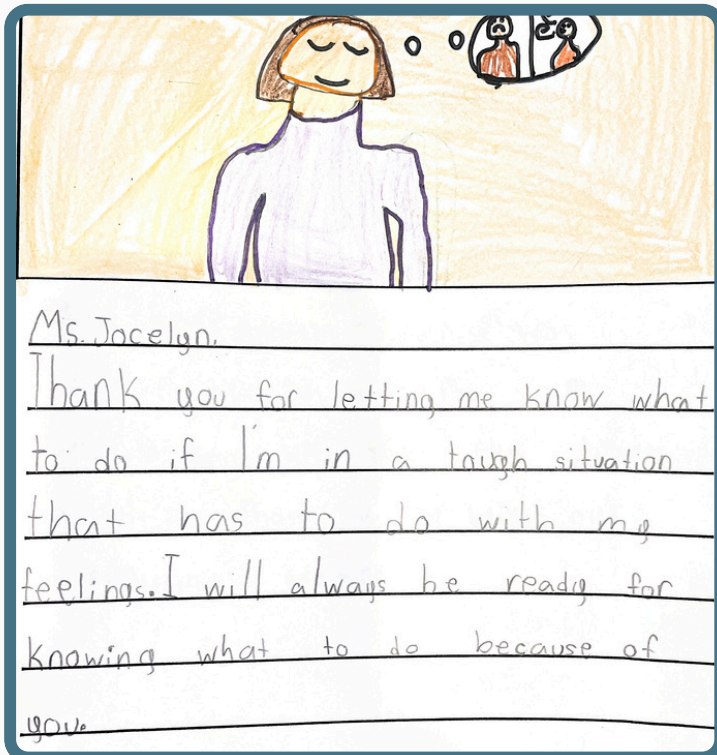 Ms. Jocelyn,
Thank you for letting me know what
to do if I'm in a tough situation
that has to do with my
feelings. I will always be ready for
knowing what to do because of
you.